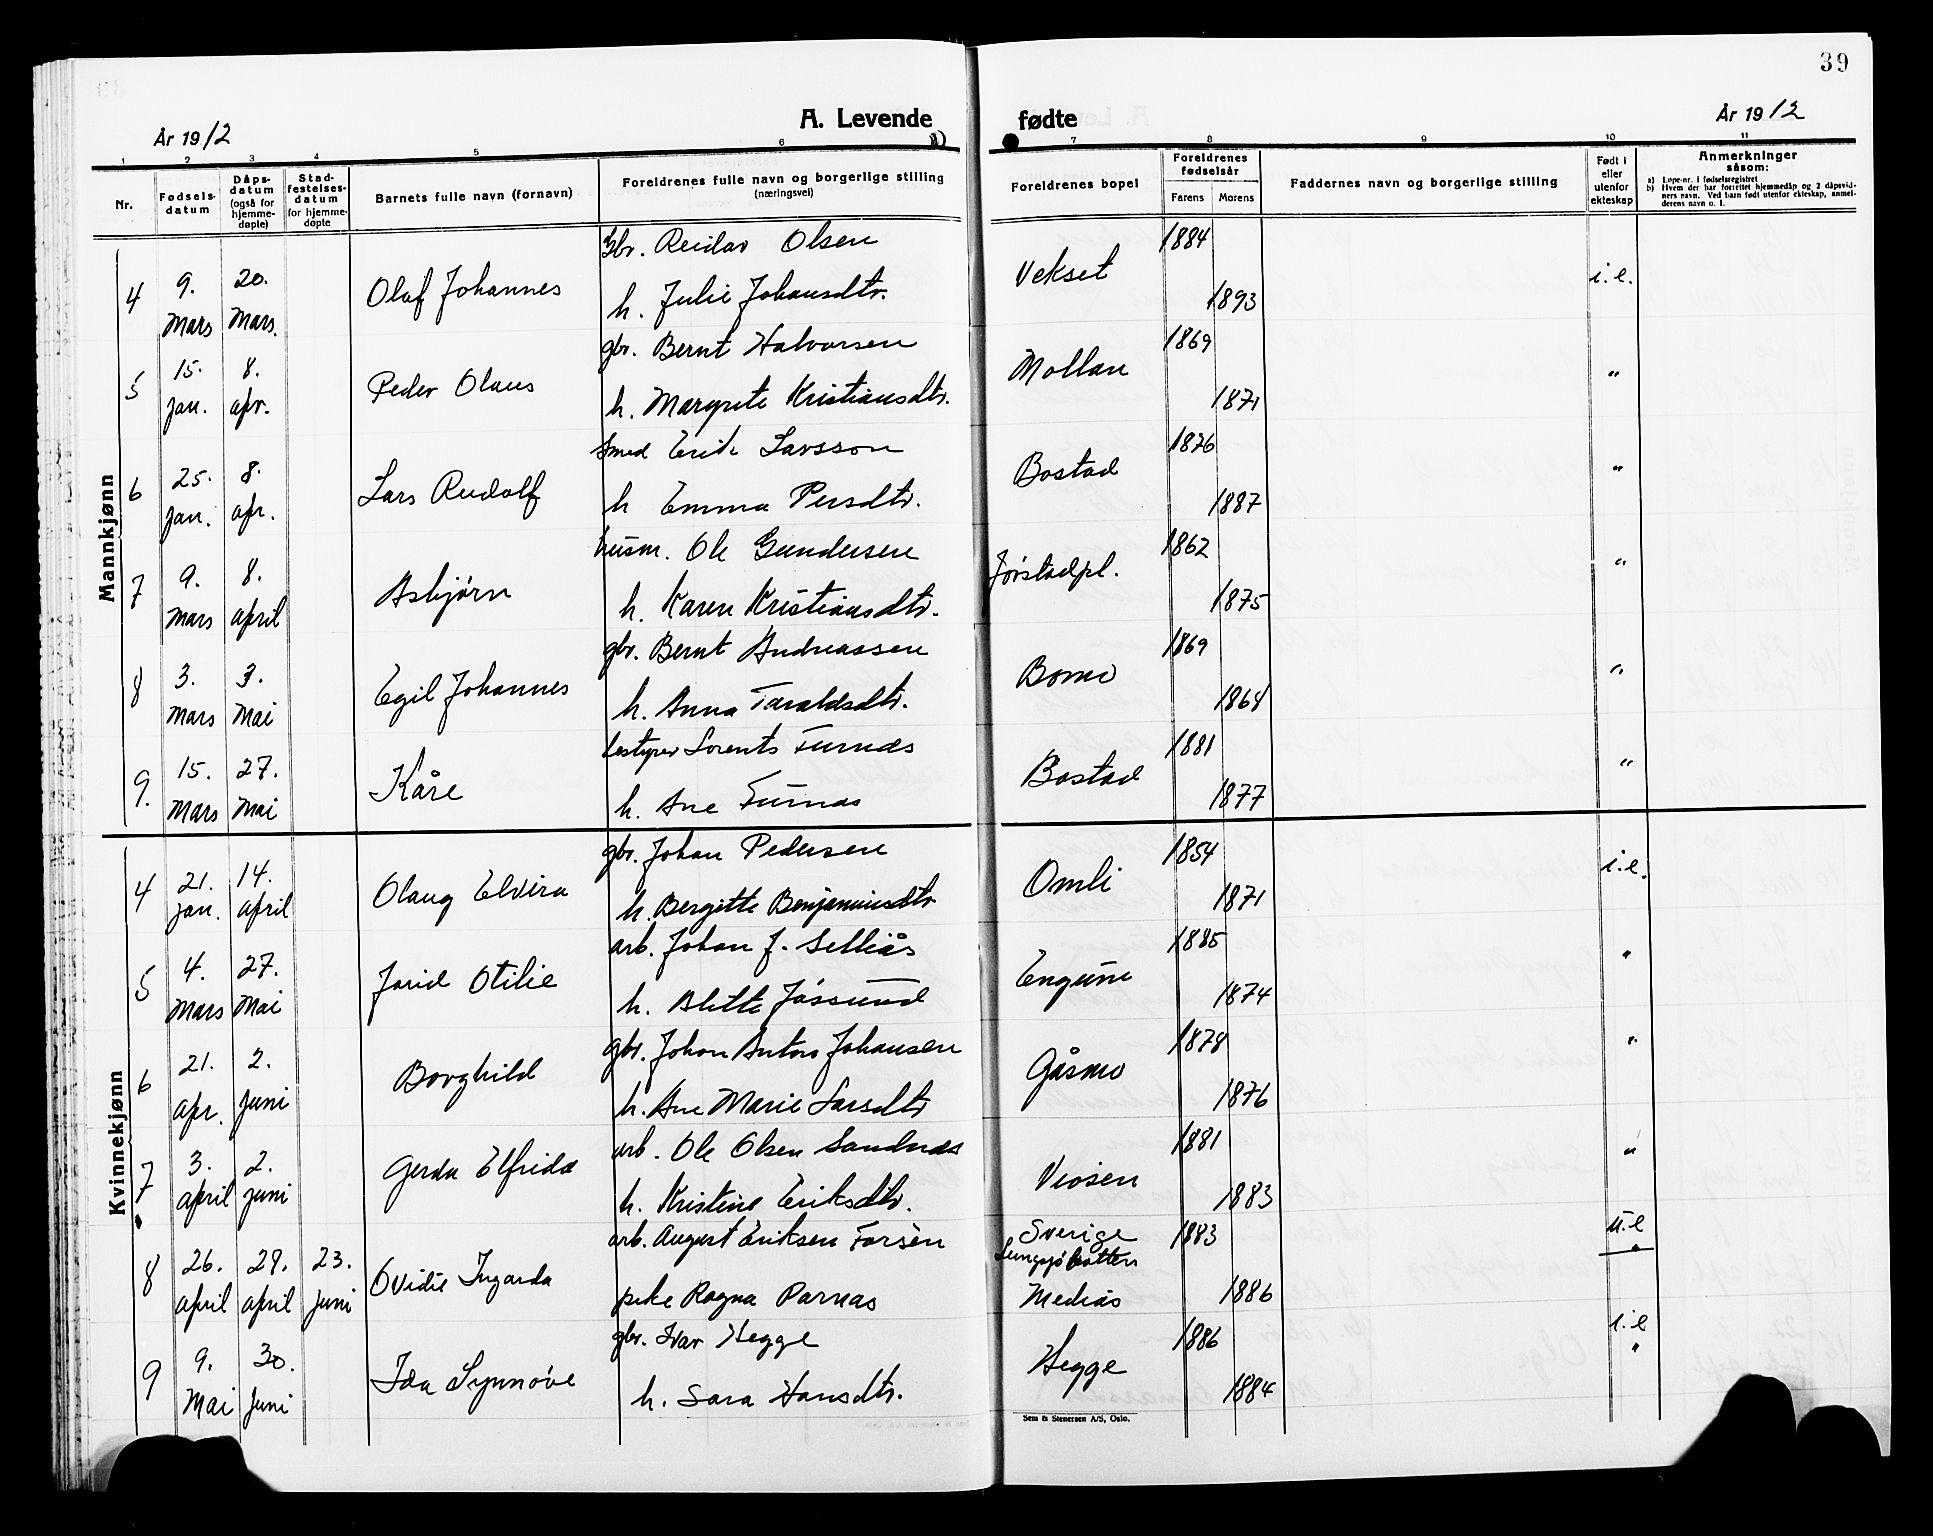 39
År 1912
A. Levende fødte
År 1912
1 2 3 4 5 6 7 8 9 10 11
Nr.
Fødsels-datum
Dåps-datum (også for hjemme-døpte)
Stad-festelses-datum for hjemme-døpte
Barnets fulle navn (fornavn)
Foreldrenes fulle navn og borgerlige stilling (næringsvei)
Foreldrenes bopel
Foreldrenes fødselsår
Farens Morens
Faddernes navn og borgerlige stilling
Født i eller utenfor ekteskap
Anmerkninger såsom:
a) Løpe-nr. i fødselsregistret
b) Hvem der har forrettet hjemmedåp og 2 dåpsvidners navn. Ved barn født utenfor ekteskap, anmelderens navn o. l.
Mannkjønn
4 9. Mars 20. Mars. Olaf Johannes Gbr. Reidar Olsen Vekset 1884 i.e.
h. Julie Johansdtr. 1893
5 15. jan. 8. apr. Peder Olaus gbr. Bernt Halvorsen Mollan 1869 "
h. Margrete Kristiansdtr. 1871
6 25. jan. 8. apr. Lars Rudolf Smed Erik Larsson Bostad 1876 "
h Emma Persdtr. 1887
7 9. Mars 8. april Asbjørn husm. Ole Gundersen Jørstadpl. 1862 "
h. Karen Kristiansdtr. 1875
8 3. Mars 3. Mai Egil Johannes gbr. Bernt Andreassen Bomo 1869 "
h. Anna Taraldsdtr. 1864
9. 15. Mars 27. Mai Kåre bestyrer Lorents Furnæs Bostad 1881 "
h. Ane Furnæs 1877
Kvinnekjønn
4 21. jan. 14. april Olaug Elvira gbr. Johan Pedersen Omli 1854 i.e.
h. Bergitte Benjaminsdtr 1871
5 4. Mars 27. Mai Jorid Otilie arb. Johan J. Selliås 1885 "
h. Blette Jøssund 1874
6 21. apr. 2. juni Borghild gbr. Johan Anton Johansen Gåsmo 1878 "
h. Ane Marie Larsdtr 1876
7 3. april 2. juni Gerda Elfrida arb. Ole Olsen Sandnes Viosen 1881 "
h. Kristine Eriksdtr. 1883
8 26. april 28. april 23. juni Ovidie Ingarda arb. August Eriksen Forsèn Sverige 1883 u.e
pike Ragna Parnas Mediås 1886
9 9. Mai 30. Juni Ida Synnøve gbr. Ivar Hegge Hegge 1886 i.e "
h. Sara Hansdtr. 1884
Sem & Stenersen A/S, Oslo.